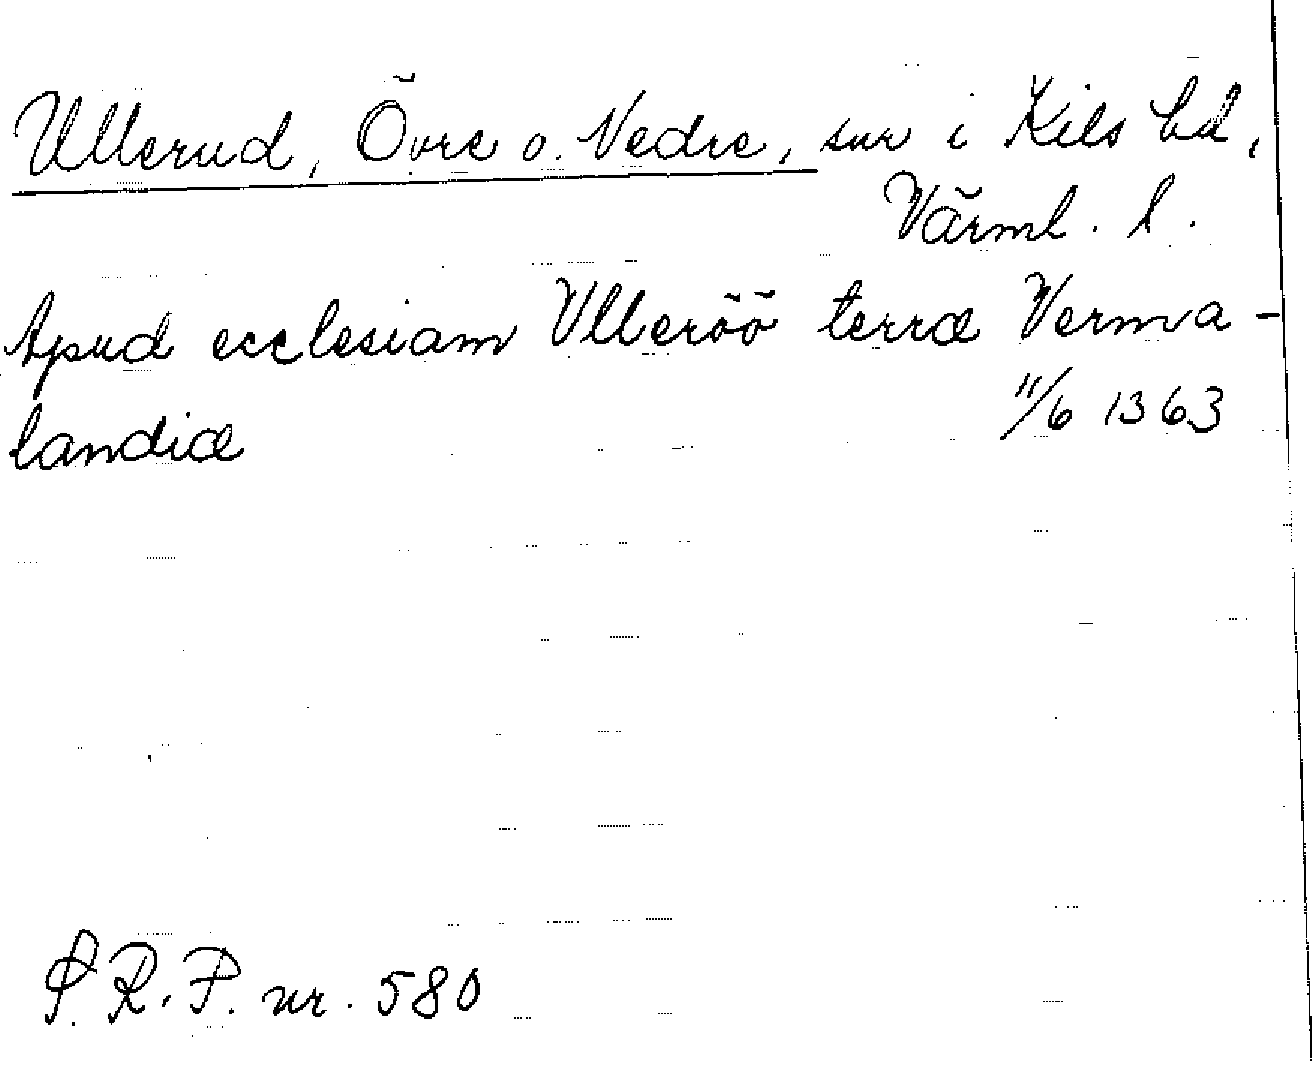 Ullerud, Övre o. Nedre, snr i Kils hd,
Värml. l.
Apud ecclesiam Ulleröö terræ Verma-
landiæ
11/6 1363
S.R.P. nr. 580